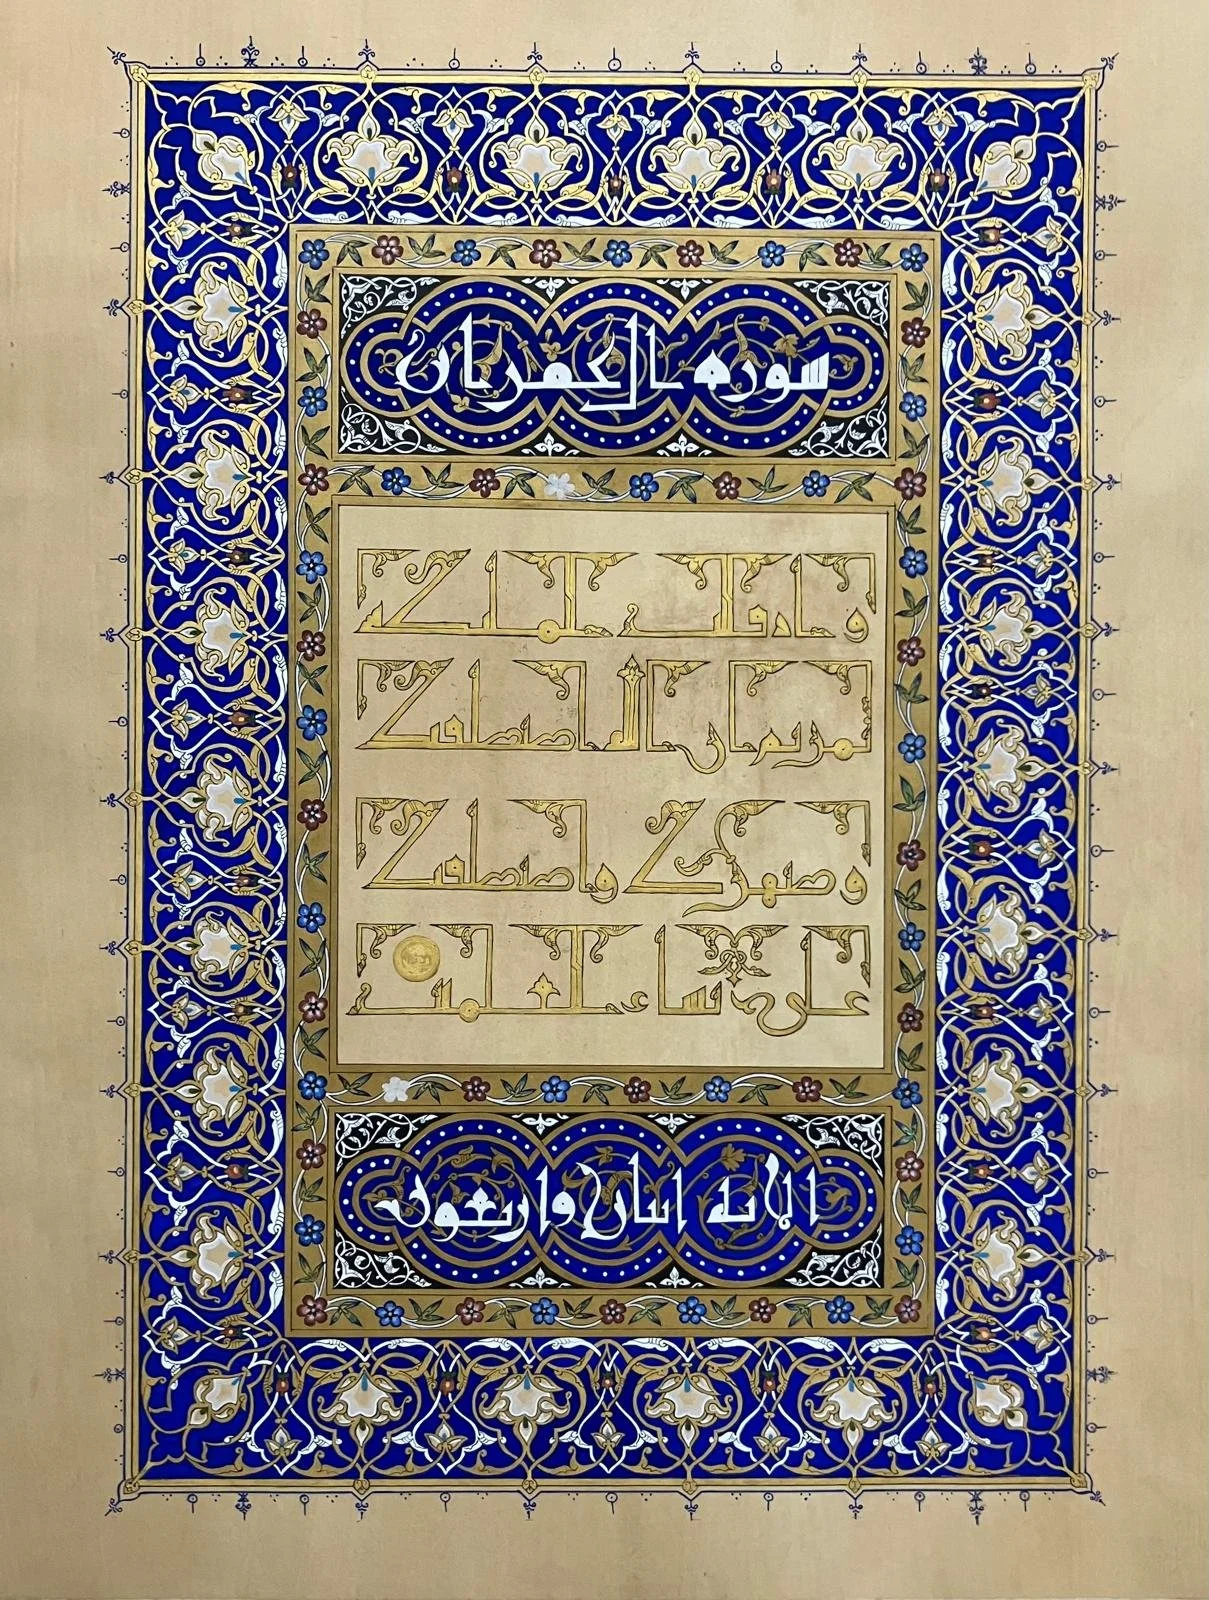 سورة آل عمران
وإذ قالت الملئكة
يمريم إن الله اصطفىك
وطهرك واصطفىك
على نساء العلمين
الآية اثنان وأربعون